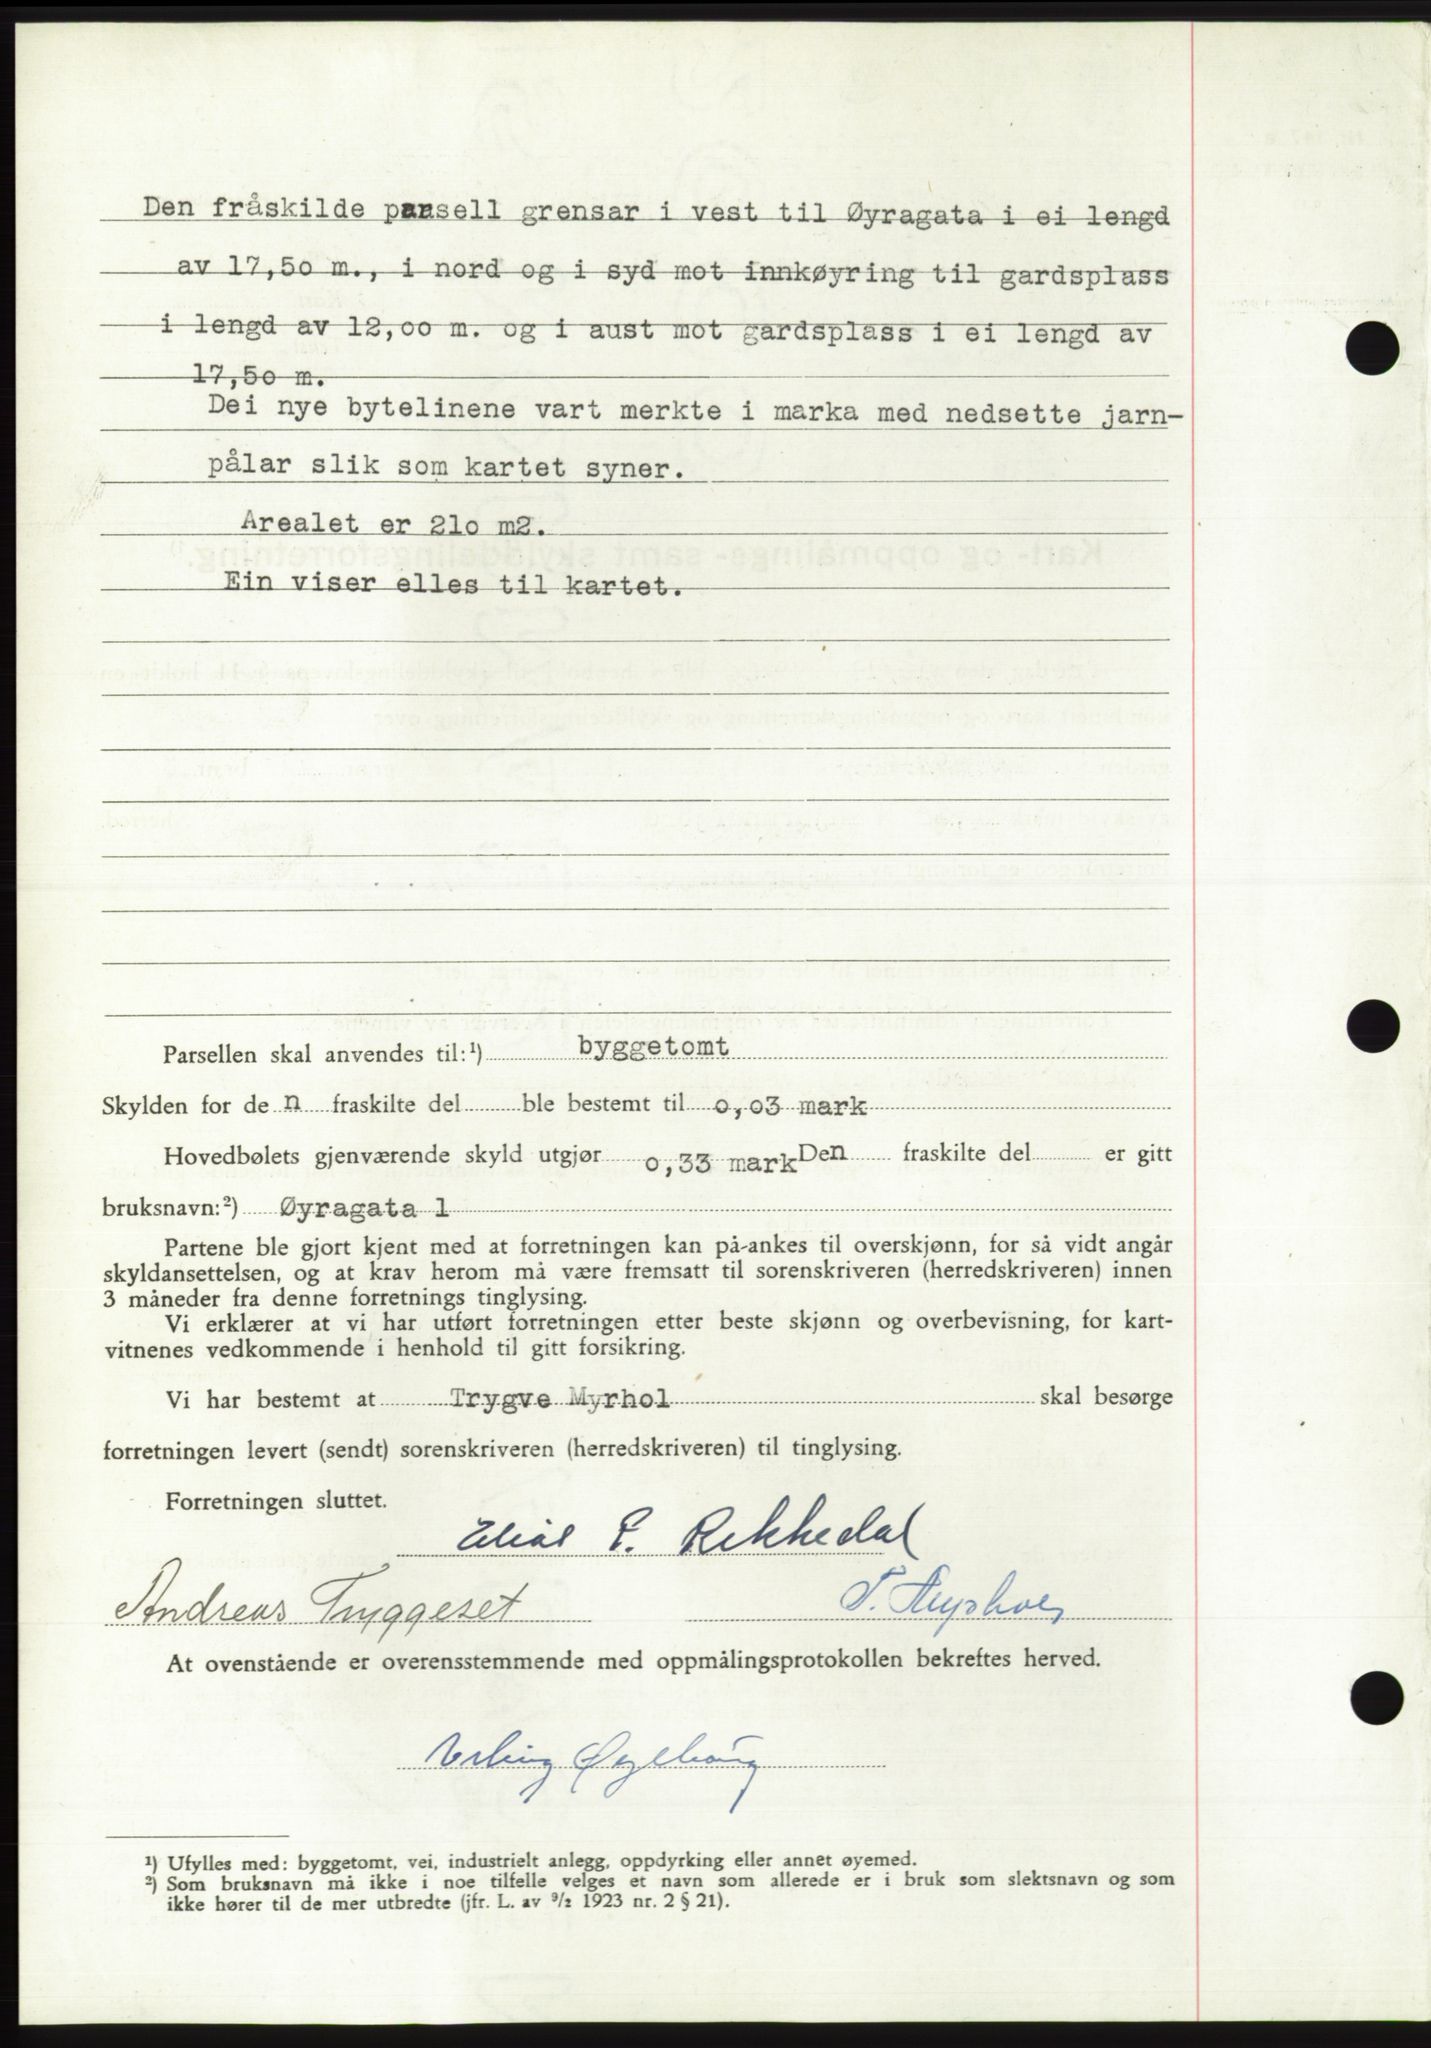 Den fråskilde parsell grensar i vest til Øyragata i ei lengd
av 17,50 m., i nord og i syd mot innkøyring til gardsplass
i lengd av 12,00 m. og i aust mot gardsplass i ei lengd av
17,50 m.
Dei nye bytelinene vart merkte i marka med nedsette jarn-
pålar slik som kartet syner.
Arealet er 210 m2.
Ein viser elles til kartet.
Parsellen skal anvendes til:¹) byggetomt
Skylden for de n fraskilte del ble bestemt til 0,03 mark
Hovedbølets gjenværende skyld utgjør 0,33 mark Den fraskilte del er gitt
bruksnavn:²) Øyragata 1
Partene ble gjort kjent med at forretningen kan på-ankes til overskjønn, for så vidt angår
skyldansettelsen, og at krav herom må være fremsatt til sorenskriveren (herredskriveren) innen
3 måneder fra denne forretnings tinglysing.
Vi erklærer at vi har utført forretningen etter beste skjønn og overbevisning, for kart-
vitnenes vedkommende i henhold til gitt forsikring.
Vi har bestemt at Trygve Myrhol skal besørge
forretningen levert (sendt) sorenskriveren (herredskriveren) til tinglysing.
Forretningen sluttet.
Elias P. Rekkedal
Andreas Tryggeset
At ovenstående er overensstemmende med oppmålingsprotokollen bekreftes herved.
¹) Ufylles med: byggetomt, vei, industrielt anlegg, oppdyrking eller annet øyemed.
²) Som bruksnavn må ikke i noe tilfelle velges et navn som allerede er i bruk som slektsnavn og som
ikke hører til de mer utbredte (jfr. L. av 9/2 1923 nr. 2 § 21).